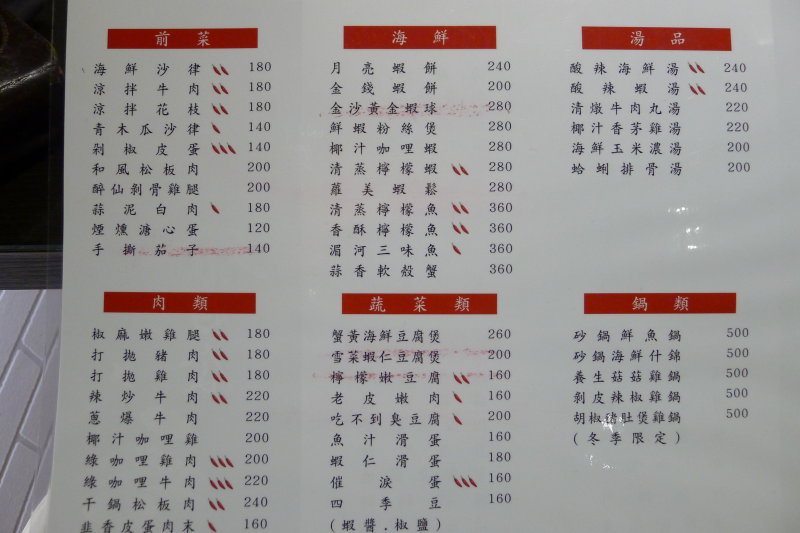 前菜
海鮮沙律 180
涼拌牛肉 180
涼拌花枝 180
青木瓜沙律 140
剁椒皮蛋 140
和風松板肉 200
醉仙剝骨雞腿 200
蒜泥白肉 180
煙燻溏心蛋 120
手撕茄子 140
海鮮
月亮蝦餅 240
金錢蝦餅 200
金沙黃金蝦球 280
鮮蝦粉絲煲 280
椰汁咖哩蝦 280
清蒸檸檬蝦 280
蘿美蝦鬆 280
清蒸檸檬魚 360
香酥檸檬魚 360
湄河三味魚 360
蒜香軟殼蟹 360
湯品
酸辣海鮮湯 240
酸辣蝦湯 240
清燉牛肉丸湯 220
椰汁香茅雞湯 220
海鮮玉米濃湯 200
蛤蜊排骨湯 200
肉類
椒麻嫩雞腿 180
打拋豬肉 180
打拋雞肉 180
辣炒牛肉 220
蔥爆牛肉 220
椰汁咖哩雞 200
綠咖哩雞肉 200
綠咖哩牛肉 220
干鍋松板肉 240
韭香皮蛋肉末 160
蔬菜類
蟹黃海鮮豆腐煲 260
雪菜蝦仁豆腐煲 200
檸檬嫩豆腐 160
老皮嫩肉 160
吃不到臭豆腐 200
魚汁滑蛋 160
蝦仁滑蛋 180
催淚蛋 160
四季豆 160
(蝦醬.椒鹽)
鍋類
砂鍋鮮魚鍋 500
砂鍋海鮮什錦 500
養生菇菇雞鍋 500
剝皮辣椒雞鍋 500
胡椒豬肚煲雞鍋 500
(冬季限定)